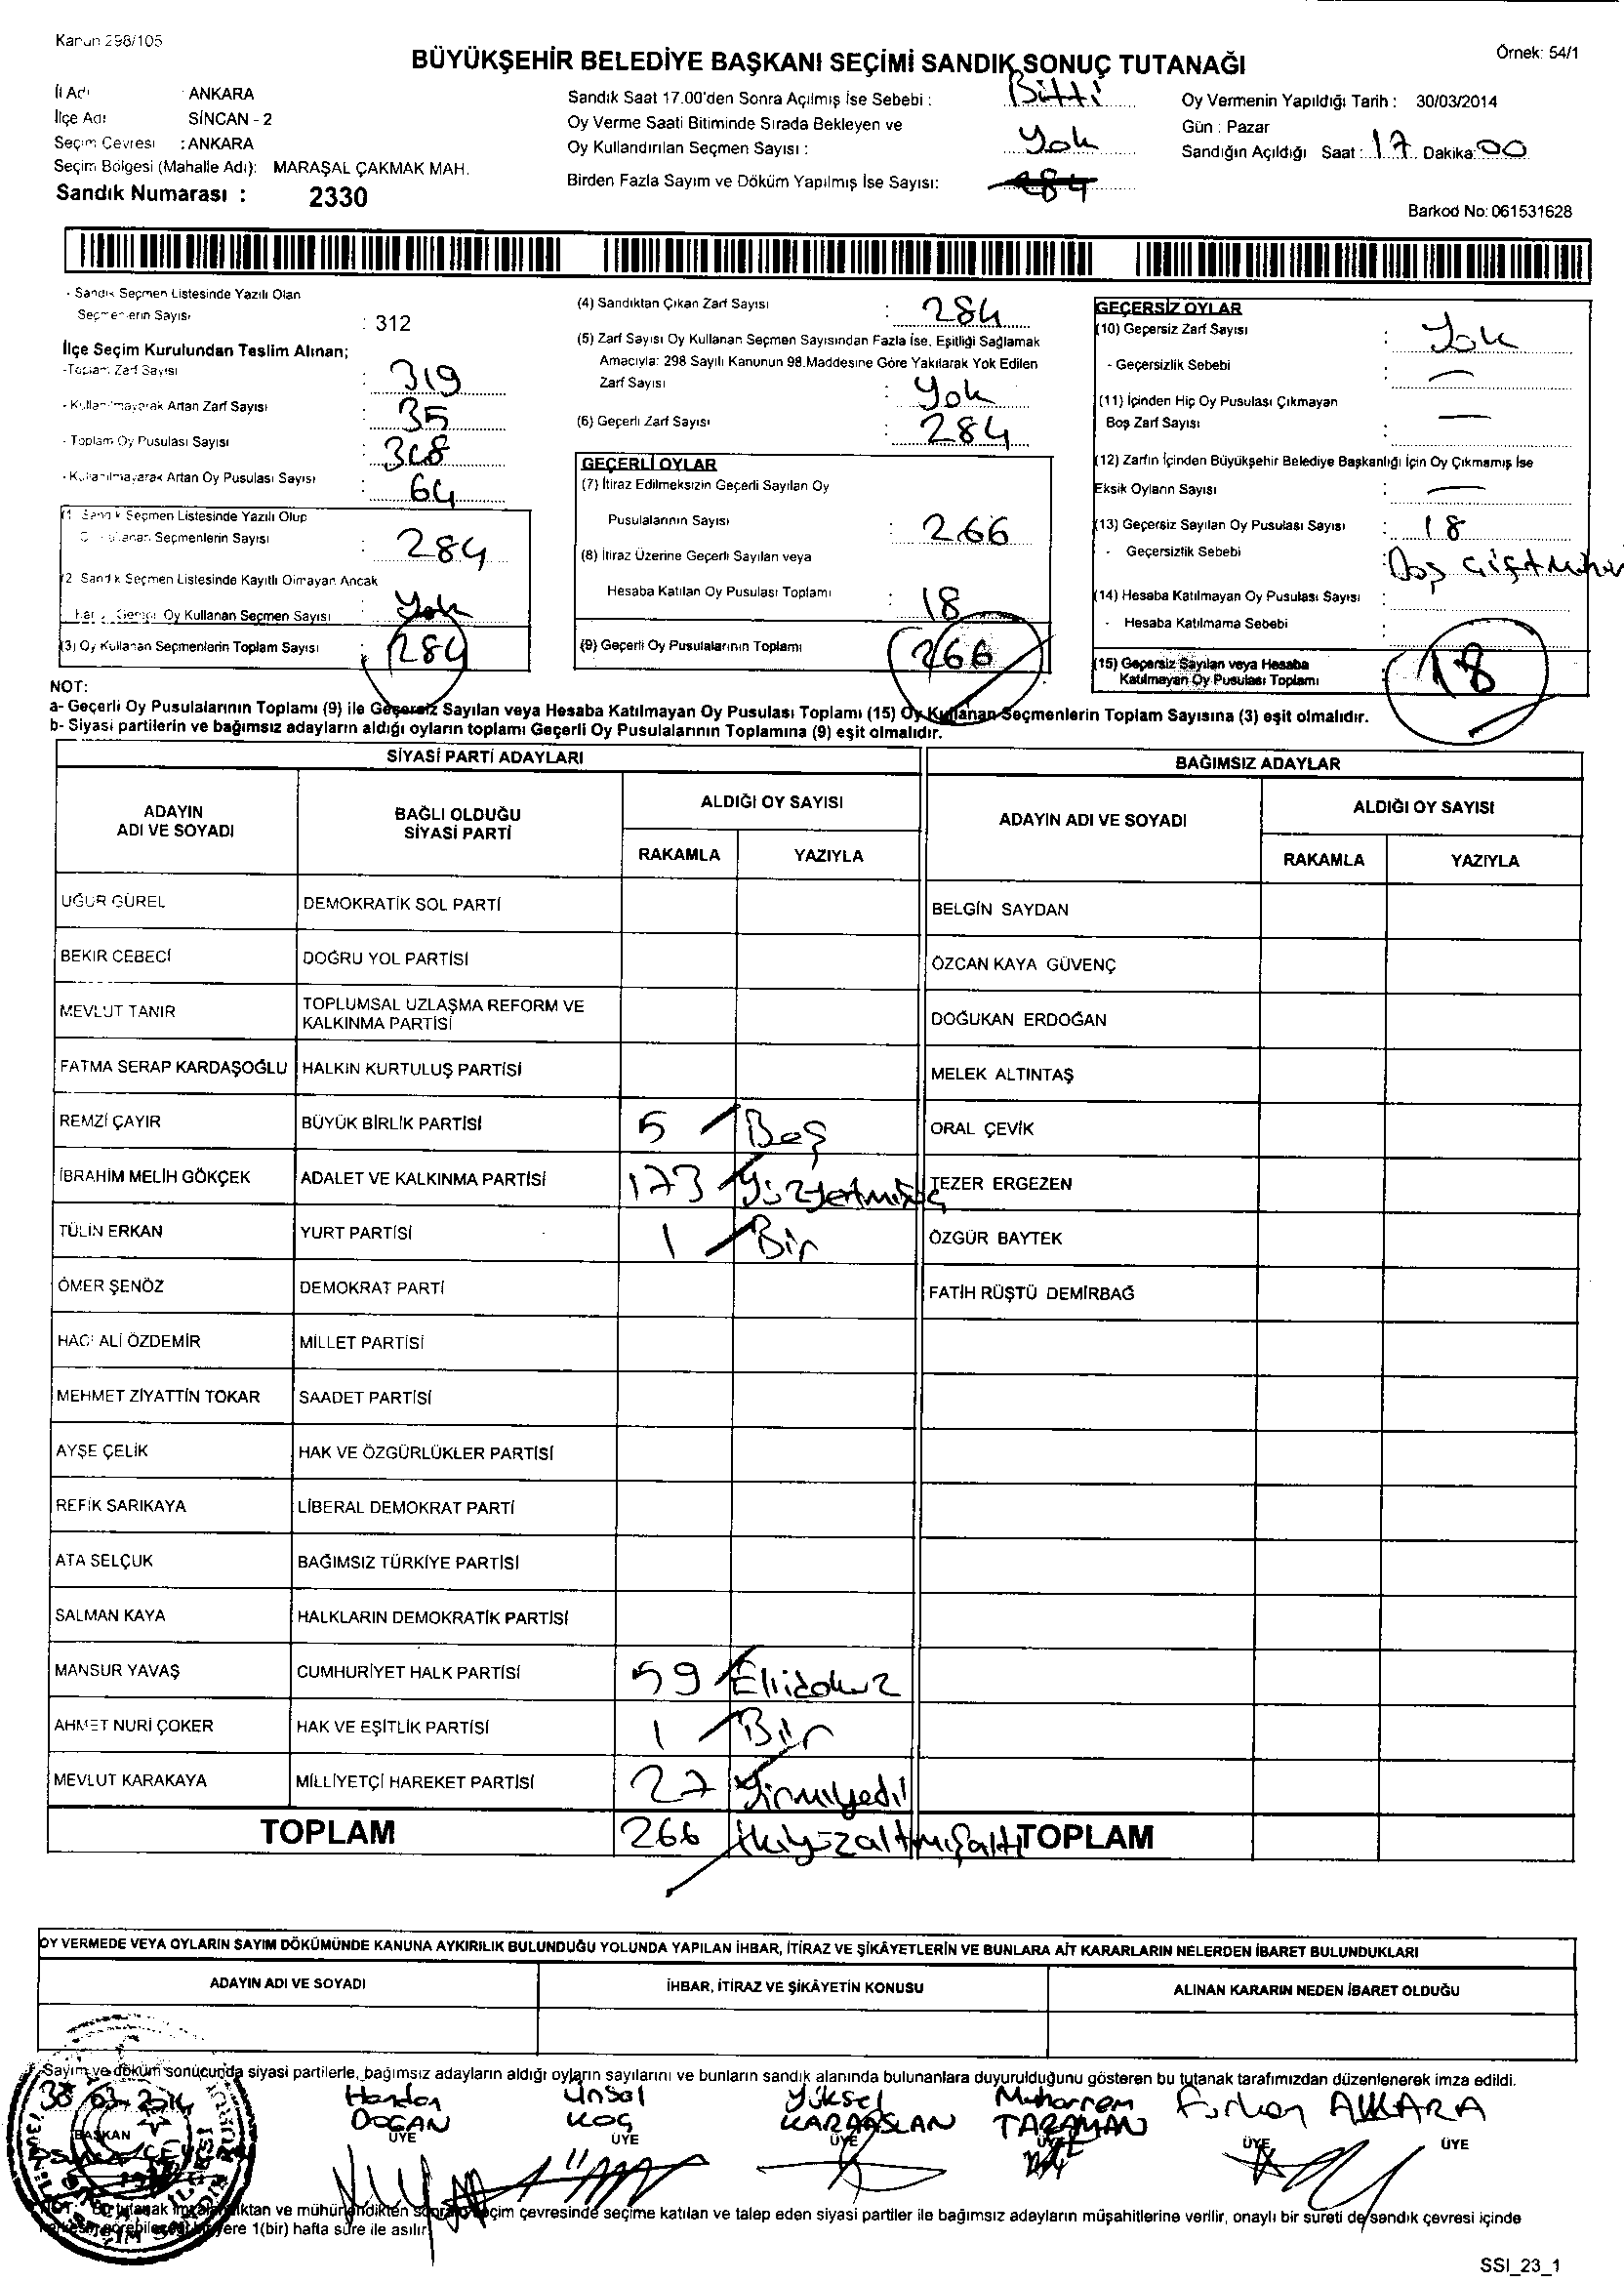 Kanun 298/105
Örnek: 54/1
BÜYÜKŞEHİR BELEDİYE BAŞKANI SEÇİMİ SANDIK SONUÇ TUTANAĞI
İl Adı : ANKARA
İlçe Adı SİNCAN - 2
Seçim Çevresi : ANKARA
Seçim Bölgesi (Mahalle Adı): MARAŞAL ÇAKMAK MAH.
Sandık Numarası : 2330
Sandık Saat 17.00'den Sonra Açılmış İse Sebebi : Bitti
Oy Verme Saati Bitiminde Sırada Bekleyen ve
Oy Kullandırılan Seçmen Sayısı : Yok
Birden Fazla Sayım ve Döküm Yapılmış İse Sayısı: 284
Oy Vermenin Yapıldığı Tarih : 30/03/2014
Gün : Pazar
Sandığın Açıldığı Saat : 17 Dakika: 00
Barkod No: 061531628
- Sandık Seçmen Listesinde Yazılı Olan
Seçmenlerin Sayısı : 312
İlçe Seçim Kurulundan Teslim Alınan;
-Toplam Zarf Sayısı : 319
- Kullanılmayarak Artan Zarf Sayısı : 35
- Toplam Oy Pusulası Sayısı : 348
- Kullanılmayarak Artan Oy Pusulası Sayısı : 64
(1) Sandık Seçmen Listesinde Yazılı Olup
Oy Kullanan Seçmenlerin Sayısı : 284
(2) Sandık Seçmen Listesinde Kayıtlı Olmayan Ancak
Oy Kullanan Seçmen Sayısı : Yok
(3) Oy Kullanan Seçmenlerin Toplam Sayısı : 284
(4) Sandıktan Çıkan Zarf Sayısı : 284
(5) Zarf Sayısı Oy Kullanan Seçmen Sayısından Fazla İse, Eşitliği Sağlamak
Amacıyla: 298 Sayılı Kanunun 98.Maddesine Göre Yakılarak Yok Edilen
Zarf Sayısı : Yok
(6) Geçerli Zarf Sayısı : 284
GEÇERLİ OYLAR
(7) İtiraz Edilmeksizin Geçerli Sayılan Oy
Pusulalarının Sayısı : 266
(8) İtiraz Üzerine Geçerli Sayılan veya
Hesaba Katılan Oy Pusulası Toplamı : 18
(9) Geçerli Oy Pusulalarının Toplamı 266
GEÇERSİZ OYLAR
(10) Geçersiz Zarf Sayısı : Yok
- Geçersizlik Sebebi : —
(11) İçinden Hiç Oy Pusulası Çıkmayan
Boş Zarf Sayısı : —
(12) Zarfın İçinden Büyükşehir Belediye Başkanlığı İçin Oy Çıkmamış İse
Eksik Oyların Sayısı : —
(13) Geçersiz Sayılan Oy Pusulası Sayısı : 18
- Geçersizlik Sebebi : Boş
(14) Hesaba Katılmayan Oy Pusulası Sayısı :
- Hesaba Katılmama Sebebi :
(15) Geçersiz Sayılan veya Hesaba
Katılmayan Oy Pusulası Toplamı : 18
NOT:
a- Geçerli Oy Pusulalarının Toplamı (9) ile Geçersiz Sayılan veya Hesaba Katılmayan Oy Pusulası Toplamı (15) Oy Kullanan Seçmenlerin Toplam Sayısına (3) eşit olmalıdır.
b- Siyasi partilerin ve bağımsız adayların aldığı oyların toplamı Geçerli Oy Pusulalarının Toplamına (9) eşit olmalıdır.
SİYASİ PARTİ ADAYLARI
BAĞIMSIZ ADAYLAR
ADAYIN ADI VE SOYADI
BAĞLI OLDUĞU SİYASİ PARTİ
ALDIĞI OY SAYISI
RAKAMLA YAZIYLA
ADAYIN ADI VE SOYADI
ALDIĞI OY SAYISI
RAKAMLA YAZIYLA
UĞUR GÜREL DEMOKRATİK SOL PARTİ BELGİN SAYDAN
BEKİR CEBECİ DOĞRU YOL PARTİSİ ÖZCAN KAYA GÜVENÇ
MEVLUT TANIR TOPLUMSAL UZLAŞMA REFORM VE KALKINMA PARTİSİ DOĞUKAN ERDOĞAN
FATMA SERAP KARDAŞOĞLU HALKIN KURTULUŞ PARTİSİ MELEK ALTINTAŞ
REMZİ ÇAYIR BÜYÜK BİRLİK PARTİSİ 5 Beş ORAL ÇEVİK
İBRAHİM MELİH GÖKÇEK ADALET VE KALKINMA PARTİSİ 173 Yüzyetmişüç TEZER ERGEZEN
TÜLİN ERKAN YURT PARTİSİ 1 Bir ÖZGÜR BAYTEK
ÖMER ŞENÖZ DEMOKRAT PARTİ FATİH RÜŞTÜ DEMİRBAĞ
HACI ALİ ÖZDEMİR MİLLET PARTİSİ
MEHMET ZİYATTİN TOKAR SAADET PARTİSİ
AYŞE ÇELİK HAK VE ÖZGÜRLÜKLER PARTİSİ
REFİK SARIKAYA LİBERAL DEMOKRAT PARTİ
ATA SELÇUK BAĞIMSIZ TÜRKİYE PARTİSİ
SALMAN KAYA HALKLARIN DEMOKRATİK PARTİSİ
MANSUR YAVAŞ CUMHURİYET HALK PARTİSİ 59 Ellidokuz
AHMET NURİ ÇOKER HAK VE EŞİTLİK PARTİSİ 1 Bir
MEVLUT KARAKAYA MİLLİYETÇİ HAREKET PARTİSİ 27 Yirmiyedi
TOPLAM 266 İkiyüzaltmışaltı TOPLAM
OY VERMEDE VEYA OYLARIN SAYIM DÖKÜMÜNDE KANUNA AYKIRILIK BULUNDUĞU YOLUNDA YAPILAN İHBAR, İTİRAZ VE ŞİKÂYETLERİN VE BUNLARA AİT KARARLARIN NELERDEN İBARET BULUNDUKLARI
ADAYIN ADI VE SOYADI İHBAR, İTİRAZ VE ŞİKÂYETİN KONUSU ALINAN KARARIN NEDEN İBARET OLDUĞU
Sayım ve döküm sonucunda siyasi partilerle, bağımsız adayların aldığı oyların sayılarını ve bunların sandık alanında bulunanlara duyurulduğunu gösteren bu tutanak tarafımızdan düzenlenerek imza edildi.
Handan DOĞAN Ünsal KOÇ Yüksel KARAASLAN Muharrem TARAMAN Furkan ANKARA
BAŞKAN ÜYE ÜYE ÜYE ÜYE ÜYE ÜYE
NOT: Bu tutanak imzalandıktan ve mühürlendikten sonra seçim çevresinde seçime katılan ve talep eden siyasi partiler ile bağımsız adayların müşahitlerine verilir, onaylı bir sureti de sandık çevresi içinde
herkesin görebileceği bir yere 1(bir) hafta süre ile asılır.
SSI_23_1